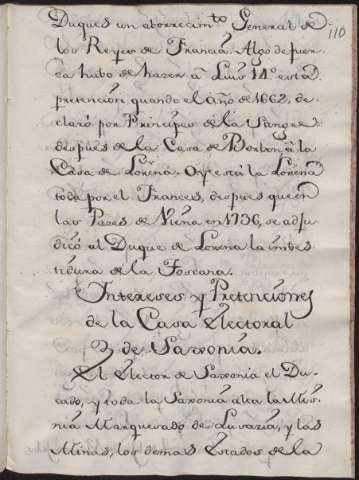 110
Duques con aborrecimto General de
los Reyes de Francia. Algo de fuer-
za hubo de hazer à Luis 14º esta
pretencion quando el año de 1662, de-
claró por Principes de la Sangre
despues de la Casa de Borbon, à la
Casa de Lorena. Oy está la Lorena
toda por el Frances, despues que en
las Pazes de Viena en 1736, se adju-
dicó al Duque de Lorena la imbes-
tidura de la Toscana.
Intereses y Pretenciones
de la Casa Electoral
de Saxonia.
El Elector de Saxonia el Du-
cado, y toda la Saxonia alta la Mis-
nia Marquesado de Luzazia, y las
Minas, los demas Estados de la